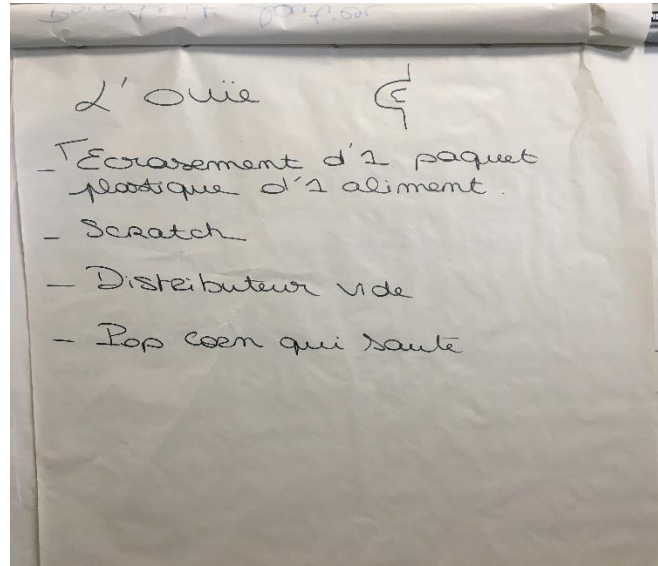 L'Ouïe
- Ecrasement d'1 paquet
plastique d'1 aliment.
- Scratch
- Distributeur vide
- Pop corn qui saute